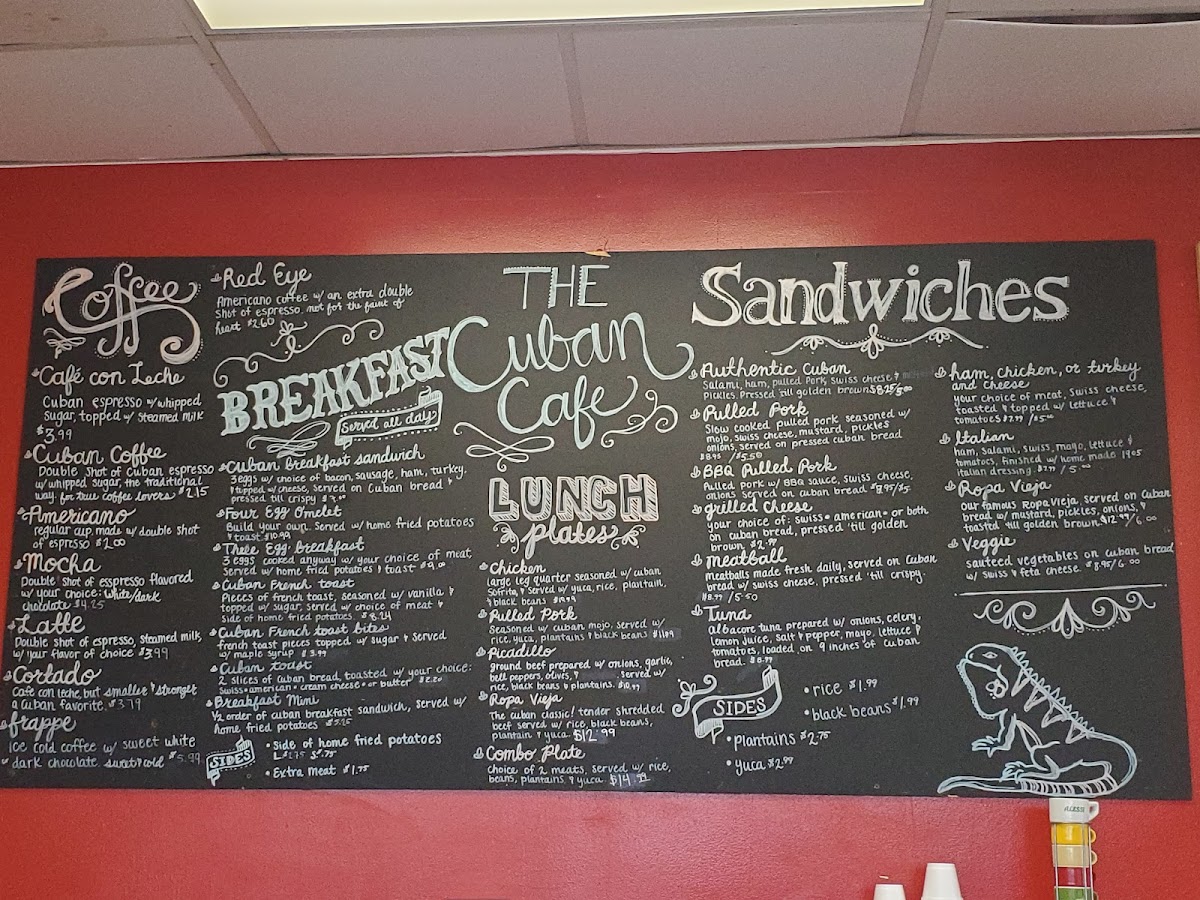 Coffee
Café con Leche
Cuban espresso w/whipped
sugar, topped w/ steamed milk
$3.99
Cuban Coffee
Double shot of Cuban espresso
w/whipped sugar, the traditional
way. for true coffee lovers $2.15
Americano
regular cup, made w/double shot
of espresso $2.00
Mocha
Double shot of espresso flavored
w/your choice: white/dark
chocolate $4.25
Latte
Double shot of espresso, steamed milk,
w/your flavor of choice $3.99
Cortado
Café con leche, but smaller & stronger
a Cuban favorite. $3.79
frappe
ice cold coffee w/ sweet white
or dark chocolate. sweet & cold $5.99
Red Eye
Americano coffee w/ an extra double
shot of espresso. not for the faint of
heart $2.60
BREAKFAST
Served all day
Cuban breakfast sandwich
3 eggs w/ choice of bacon, sausage, ham, turkey,
& topped w/cheese, served on Cuban bread &
pressed till crispy
Four Egg Omelet
Build your own. Served w/ home fried potatoes
& toast $10.99
Three Egg breakfast
3 eggs cooked anyway w/ your choice of meat
served w/ home fried potatoes & toast $9.00
Cuban French toast
Pieces of french toast, seasoned w/ vanilla &
topped w/ sugar, served w/ choice of meat &
side of home fried potatoes. $8.24
Cuban French toast bites
french toast pieces topped w/ sugar & served
w/ maple syrup $3.99
Cuban toast
2 slices of Cuban bread, toasted w/ your choice:
Swiss • american • cream cheese • or butter $2.20
Breakfast Mini
1/2 order of cuban breakfast sandwich, served w/
home fried potatoes $5.25
SIDES
• Side of home fried potatoes
• Extra meat $1.75
THE
Cuban
Cafe
LUNCH
plates
chicken
large leg quarter seasoned w/ cuban
Sofrito, & served w/ yuca, rice, plantain,
& black beans
Pulled Pork
Seasoned w/ cuban mojo, served w/
rice, yuca, plantains & black beans $11.99
Picadillo
ground beef prepared w/ onions, garlic,
bell peppers, olives, & served w/
rice, black beans & plantains. $10.99
Ropa Vieja
The cuban classic! tender shredded
beef served w/ rice, black beans,
plantain & yuca. $12.99
Combo Plate
choice of 2 meats, served w/ rice,
beans, plantains & yuca. $14.99
Sandwiches
Authentic Cuban
Salami, ham, pulled pork, swiss cheese &
Pickles. Pressed 'till golden brown
Pulled Pork
Slow cooked pulled pork seasoned w/
mojo, swiss cheese, mustard, pickles
onions, served on pressed cuban bread
$8.95 /$5.50
BBQ Pulled Pork
Pulled pork w/ BBQ sauce, swiss cheese,
onions served on cuban bread
grilled cheese
your choice of: swiss • american • or both
on cuban bread, pressed 'till golden
brown
meatball
Meatballs made fresh daily, served on Cuban
bread w/ swiss cheese, pressed 'till crispy.
Tuna
albacore tuna prepared w/ onions, celery,
lemon juice, salt & pepper, mayo, lettuce &
tomatoes, loaded on 9 inches of Cuban
bread. $8.99
SIDES
• rice $1.99
• black beans $1.99
• plantains $2.75
• yuca $2.99
ham, chicken, or turkey
and cheese
your choice of meat, swiss cheese,
toasted & topped w/ lettuce &
tomatoes
Italian
ham, salami, swiss, mayo, lettuce &
tomatoes, finished w/ home made 1905
italian dressing.
Ropa Vieja
our famous Ropa Vieja, served on Cuban
bread w/ mustard, pickles, onions, &
toasted 'till golden brown. $12.99/6.00
Veggie
sauteed vegetables on cuban bread
w/ swiss & feta cheese $8.95/6.00
ALESSI